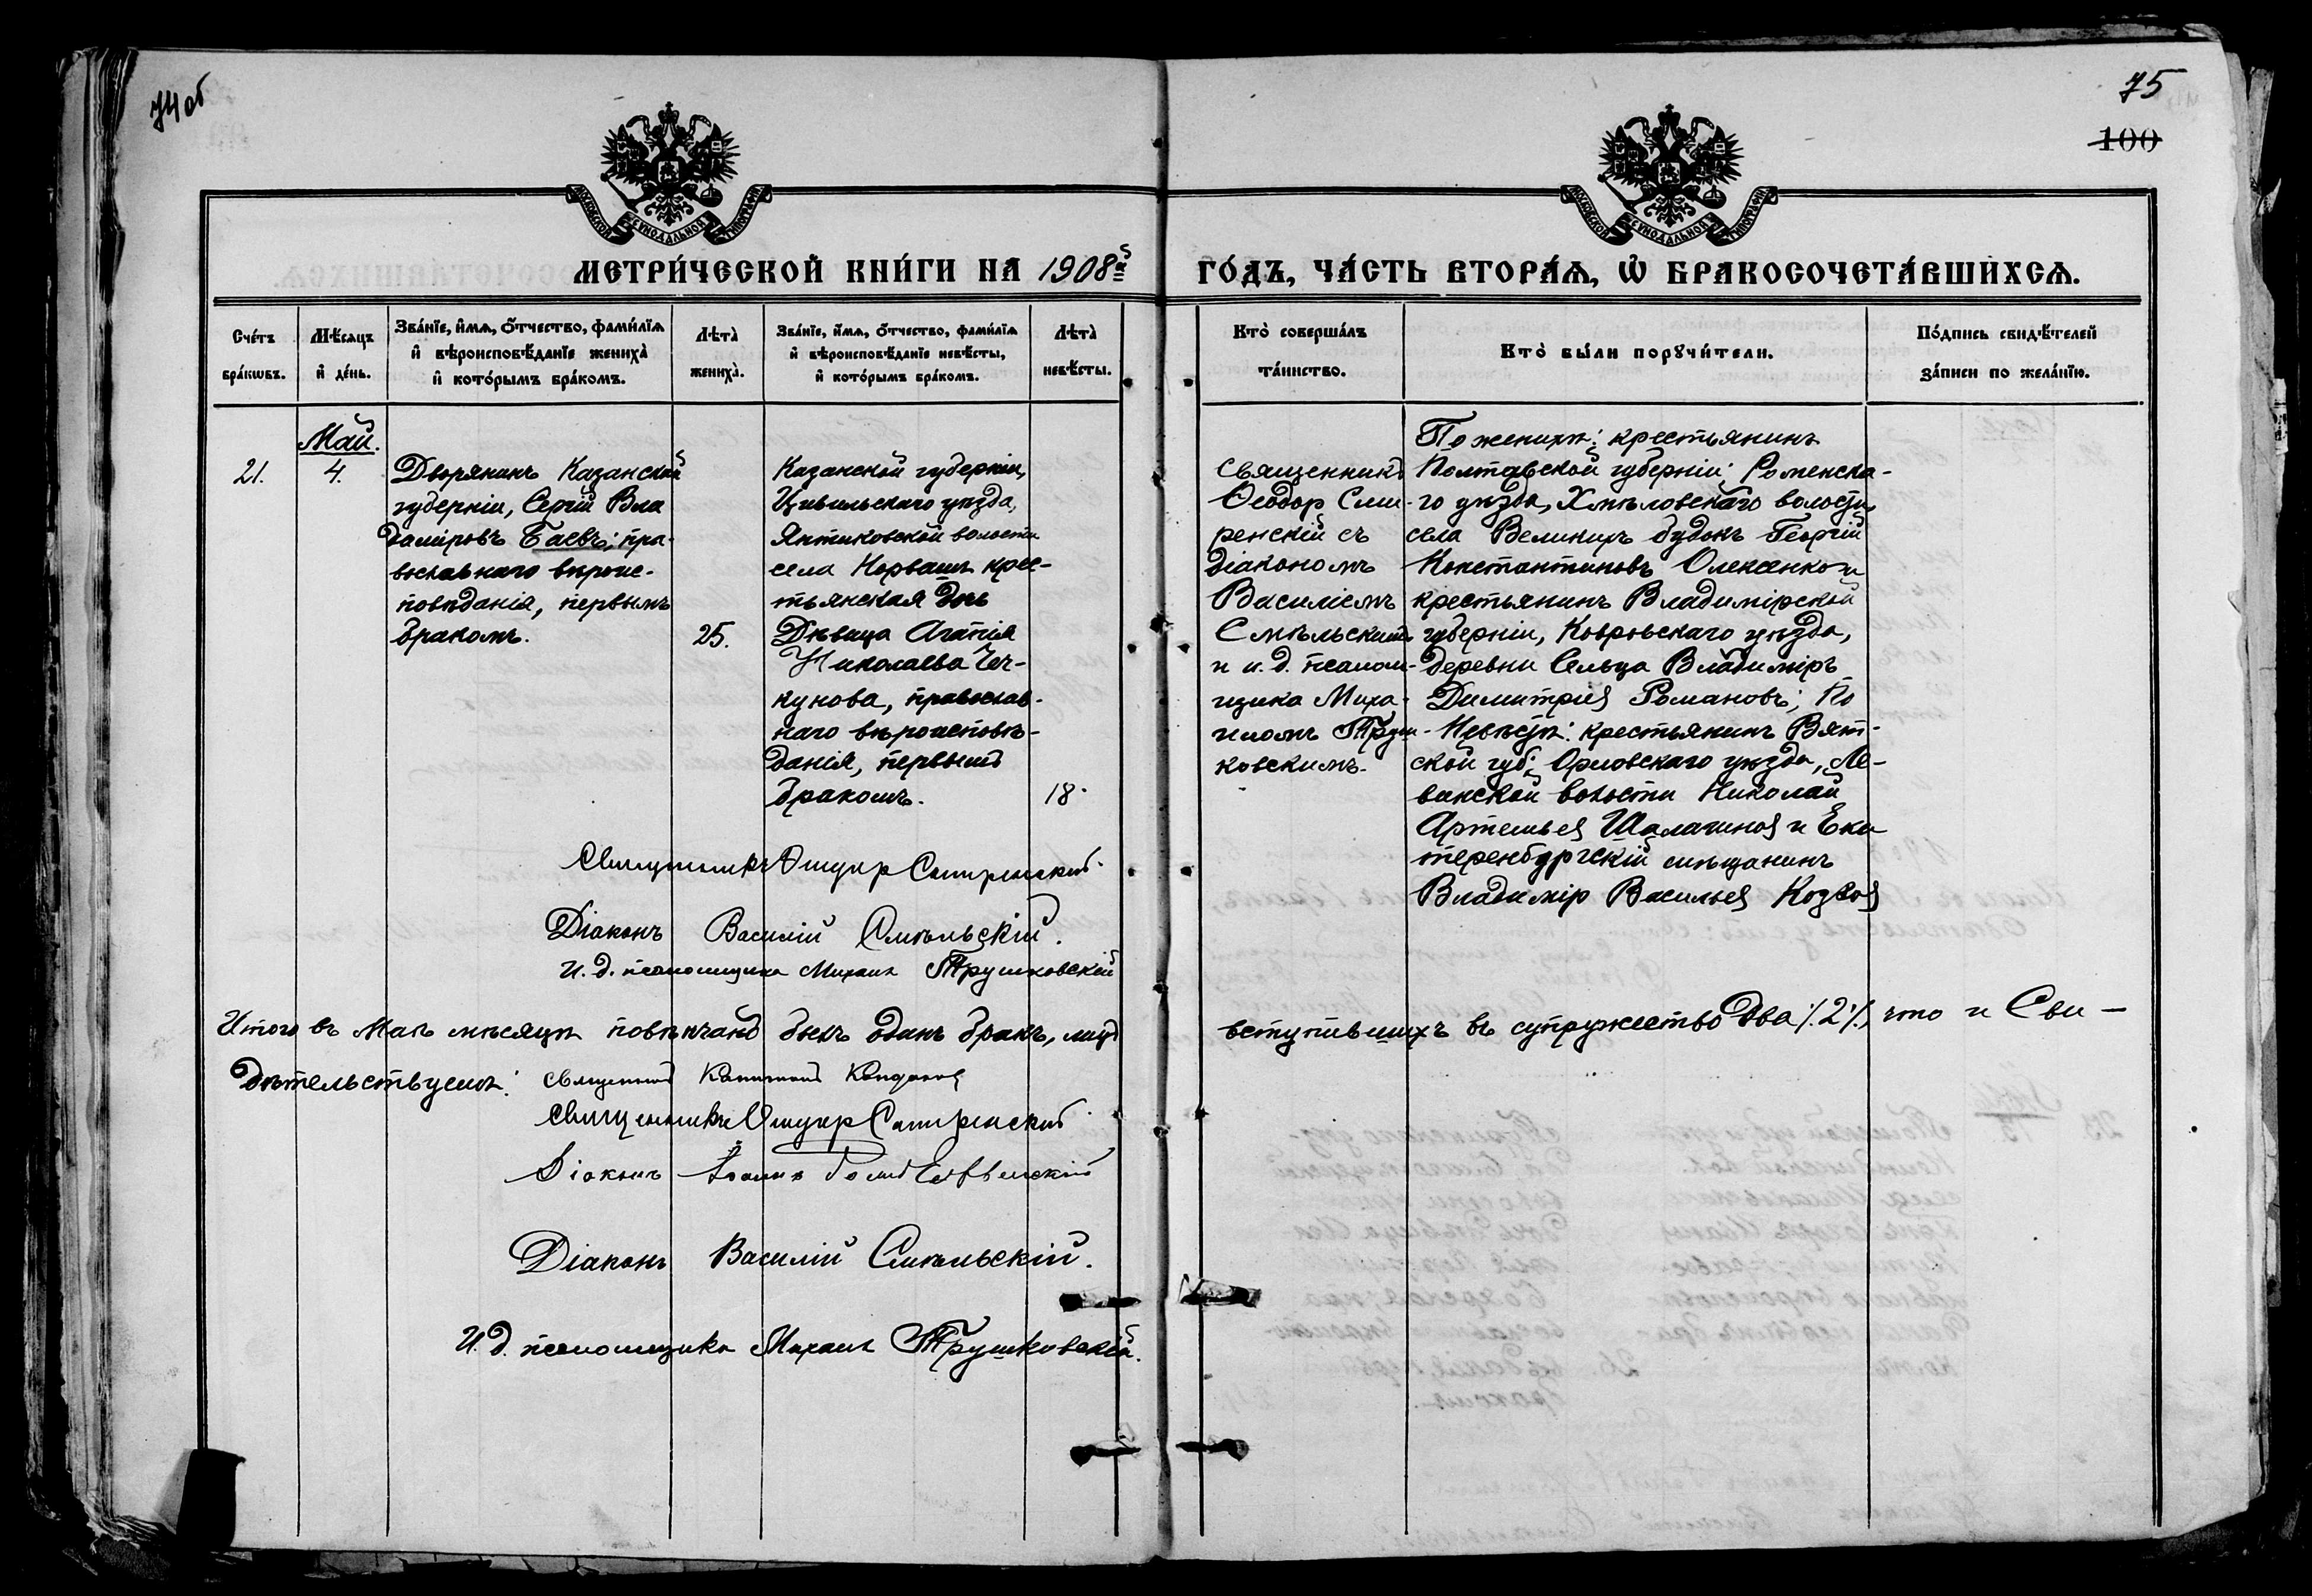 74 об
75
100
МОСКОВСКОЙ СѴНОДАЛЬНОЙ ТИПОГРАФІИ
МОСКОВСКОЙ СѴНОДАЛЬНОЙ ТИПОГРАФІИ
МЕТРИ́ЧЕСКОЙ КНИ́ГИ НА 1908й
ГО́ДЪ, ЧА́СТЬ ВТОРА́Ѧ, Ѡ҆ БРАКОСОЧЕТА́ВШИХСѦ.
Сче́тъ бра́кѡвъ.
Мѣ́сяцъ и҆ де́нь.
Зва́нїе, и҆́мѧ, ѻ҆́тчество, фами́лїѧ
и҆ вѣроисповѣ́данїе жениха̀
и҆ кото́рымъ бра́комъ.
Лѣта̀ жениха̀.
Зва́нїе, и҆́мѧ, ѻ҆́тчество, фами́лїѧ
и҆ вѣроисповѣ́данїе невѣ́сты,
и҆ кото́рымъ бра́комъ.
Лѣта̀ невѣ́сты.
Кто̀ соверша́лъ
та́инство.
Кто̀ бы́ли порꙋчи́тели.
По́дпись свидѣ́телей
за́писи по жела́нїю.
Май.
21.
4.
Дворянинъ Казанской
губерніи, Сергій Вла
диміровъ Баевъ; пра-
вославнаго вѣроис-
повѣданія, первымъ
бракомъ.
25.
Казанской губерніи,
Цивильскаго уѣзда,
Янтиковской волости
села Норвашъ крес-
тьянская дочь
Дѣвица Агапія
Николаева Чек-
кунова, православ-
наго вѣроисповѣ-
данія, первымъ
бракомъ.
18.
Священникъ
Ѳеодор Сми-
ренскій съ
діакономъ
Василіемъ
Смѣльскимъ
и и. д. псалом-
щика Миха-
иломъ Труш-
ковскимъ.
По женихѣ: крестьянинъ
Полтавской губерніи, Роменска-
го уѣзда, Хмѣловскаго волости,
села Великихъ будокъ Георгій
Константиновъ Олексенко и
крестьянинъ Владимірской
губерніи, Ковровскаго уѣзда,
деревни Сельца Владиміръ
Димитріев Романовъ; По
Невѣстѣ: крестьянинъ Вят-
ской губ. Орловскаго уѣзда, Ле-
винской волости Николай
Артемьев Шалагинов и Ека
теренбургскій мѣщанинъ
Владимір Васильев Козлов
Священникъ Ѳеодор Смиренскій.
Діаконъ Василій Смѣльскій.
И. д. псаломщика Михаил Трушковскій
Итого въ Маѣ мѣсяцѣ повѣнчанъ былъ одинъ бракъ, лицъ
вступившихъ въ супружество два /.2/., что и Сви-
дѣтельствуемъ: священникъ
Священникъ Ѳеодор Смиренскій
Діаконъ Іоаннъ
Діаконъ Василій Смѣльскій.
И. д. псаломщика Михаил Трушковскій.